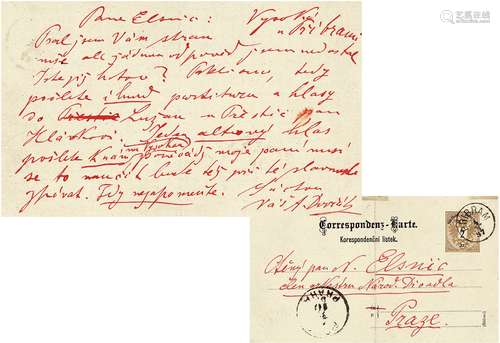 Pane Elsnic:
Vysoká
u Příbrami
Psal jsem Vám stran
mše ale žádnou odpověď jsem nedostal
Jste jiý hotov? Pakli ano, tedy
pošlete ihned partituru a hlasy
do Lužan u Přestic pan
Hlávkovi. Jeden altový hlas
pošlete k nám poněvadž moje paní musí
se to naučit bude též při té slavnosti
zpívat. Tedy nezapomeňte.
Váš A Dvořák
Correspondenz-Karte.
Korespondenční lístek.
PŘIBRAM
Ctěný pan N. Elsnic
člen orchestru Národ. Divadla
v
Praze
PRAHA